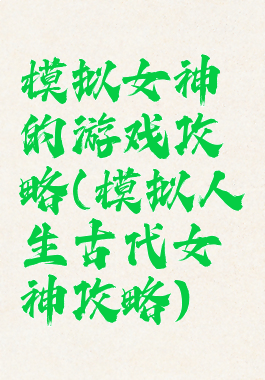 模拟女神
的游戏攻
略(模拟人
生古代女
神攻略)